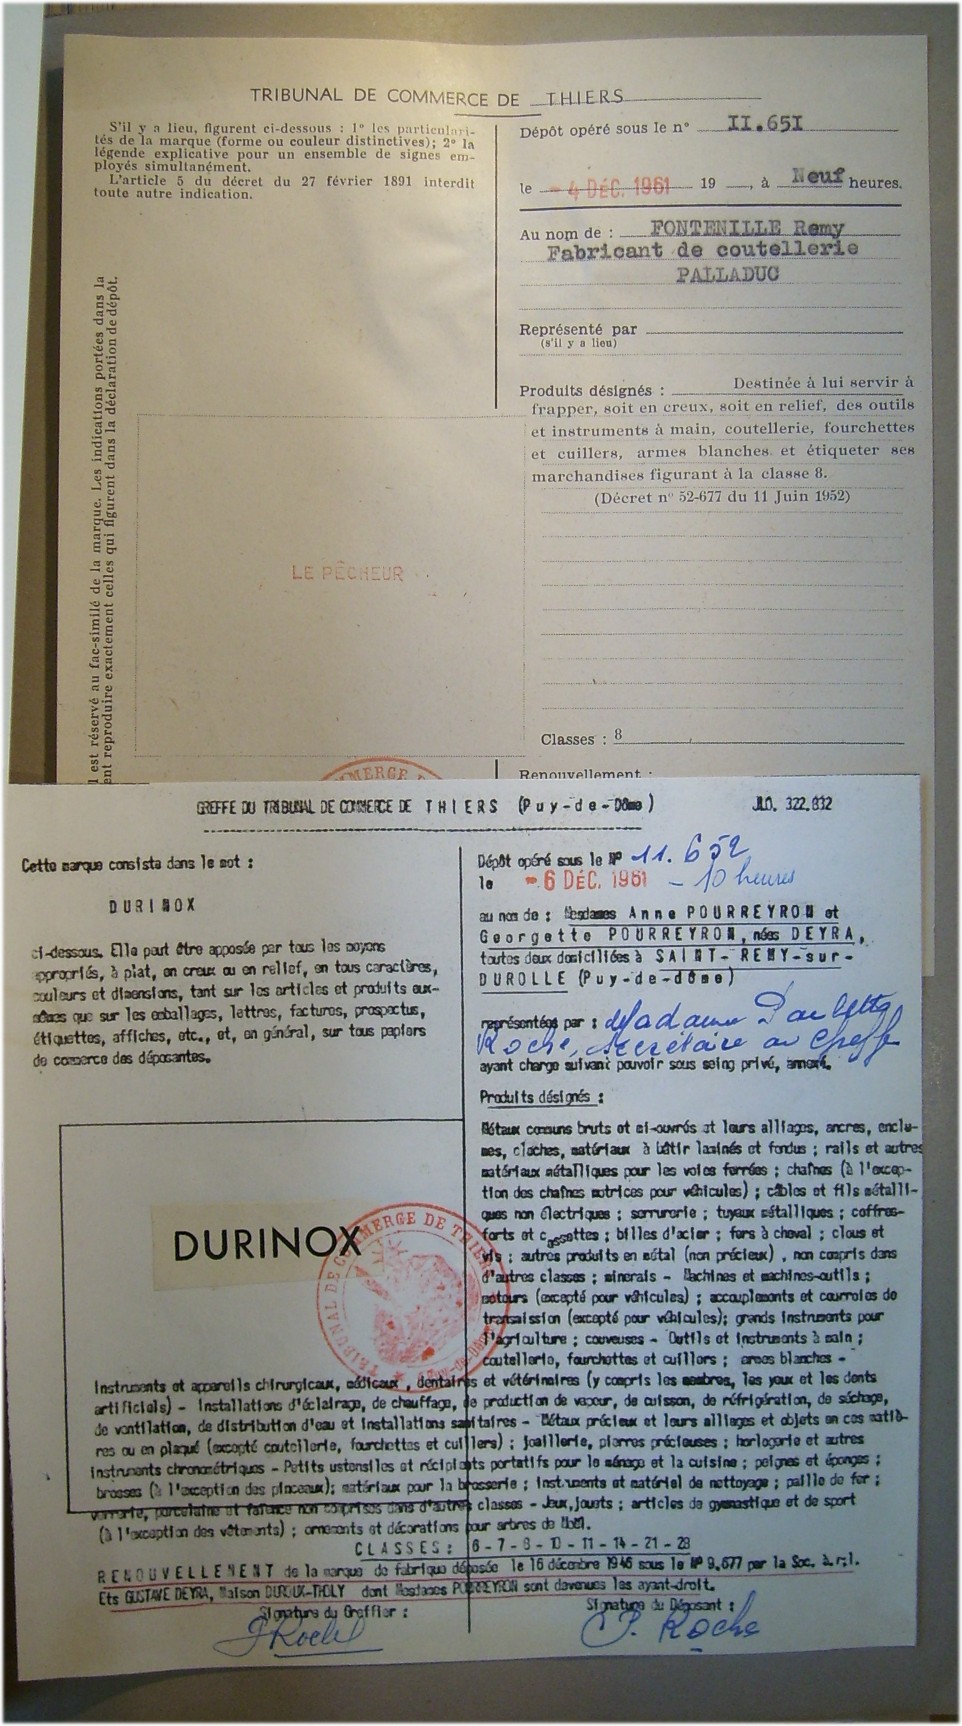 TRIBUNAL DE COMMERCE DE THIERS
S'il y a lieu, figurent ci-dessous : 1° les particulari-
tés de la marque (forme ou couleur distinctives); 2° la
légende explicative pour un ensemble de signes em-
ployés simultanément.
L'article 5 du décret du 27 février 1891 interdit
toute autre indication.
Dépôt opéré sous le n° II.65I
le - 4 DÉC. 1961 19 , à Neuf heures.
Au nom de : FONTENILLE Remy
Fabricant de coutellerie
PALLADUC
Représenté par
(s'il y a lieu)
Produits désignés : Destinée à lui servir à
frapper, soit en creux, soit en relief, des outils
et instruments à main, coutellerie, fourchettes
et cuillers, armes blanches et étiqueter ses
marchandises figurant à la classe 8.
(Décret n° 52-677 du 11 Juin 1952)
est réservé au fac-similé de la marque. Les indications portées dans la
reproduire exactement celles qui figurent dans la déclaration de dépôt.
LE PÊCHEUR
Classes : 8
Renouvellement :
GREFFE DU TRIBUNAL DE COMMERCE DE THIERS (Puy-de-Dôme)
JLO. 322.832
Cette marque consista dans le mot :
DURINOX
ci-dessous. Elle peut être apposée par tous les moyens
appropriés, à plat, en creux ou en relief, en tous caractères,
couleurs et dimensions, tant sur les articles et produits eux-
mêmes que sur les emballages, lettres, factures, prospectus,
étiquettes, affiches, etc., et, en général, sur tous papiers
de commerce des déposantes.
Dépôt opéré sous le N° 11.652
le - 6 DÉC. 1961 - 10 heures
au nom de : Mesdames Anne POURREYRON et
Georgette POURREYRON, nées DEYRA,
toutes deux domiciliées à SAINT-REMY-sur-
DUROLLE (Puy-de-dôme)
représentées par : Madame Paulette
Roche, secrétaire au Greffe
ayant charge suivant pouvoir sous seing privé, annexé.
Produits désignés :
Métaux communs bruts et mi-ouvrés et leurs alliages, ancres, enclu-
mes, cloches, matériaux à bâtir laminés et fondus ; rails et autres
matériaux métalliques pour les voies ferrées ; chaînes (à l'excep-
tion des chaînes motrices pour véhicules) ; câbles et fils métalli-
ques non électriques ; serrurerie ; tuyaux métalliques ; coffres-
forts et cassettes ; billes d'acier ; fers à cheval ; clous et
vis ; autres produits en métal (non précieux), non compris dans
d'autres classes ; minerais - Machines et machines-outils ;
moteurs (excepté pour véhicules) ; accouplements et courroies de
transmission (excepté pour véhicules); grands instruments pour
l'agriculture ; couveuses - Outils et instruments à main ;
coutellerie, fourchettes et cuillers ; armes blanches -
DURINOX
TRIBUNAL DE COMMERCE DE THIERS
Instruments et appareils chirurgicaux, médicaux, dentaires et vétérinaires (y compris les membres, les yeux et les dents
artificiels) - Installations d'éclairage, de chauffage, de production de vapeur, de cuisson, de réfrigération, de séchage,
de ventilation, de distribution d'eau et installations sanitaires - Métaux précieux et leurs alliages et objets en ces matiè-
res ou en plaqué (excepté coutellerie, fourchettes et cuillers) ; joaillerie, pierres précieuses ; horlogerie et autres
instruments chronométriques - Petits ustensiles et récipients portatifs pour le ménage et la cuisine ; peignes et éponges ;
brosses (à l'exception des pinceaux); matériaux pour la brosserie ; instruments et matériel de nettoyage ; paille de fer ;
verrerie, porcelaine et faïence non comprises dans d'autres classes - Jeux, jouets ; articles de gymnastique et de sport
(à l'exception des vêtements) ; ornements et décorations pour arbres de Noël.
CLASSES : 6 - 7 - 8 - 10 - 11 - 14 - 21 - 28
RENOUVELLEMENT de la marque de fabrique déposée le 16 décembre 1946 sous le N° 9.677 par la Soc. à.r.l.
Ets GUSTAVE DEYRA, Maison DUROUX-THOLY dont Mesdames POURREYRON sont devenues les ayant-droit.
Signature du Greffier :
Signature du Déposant :
P. Roche